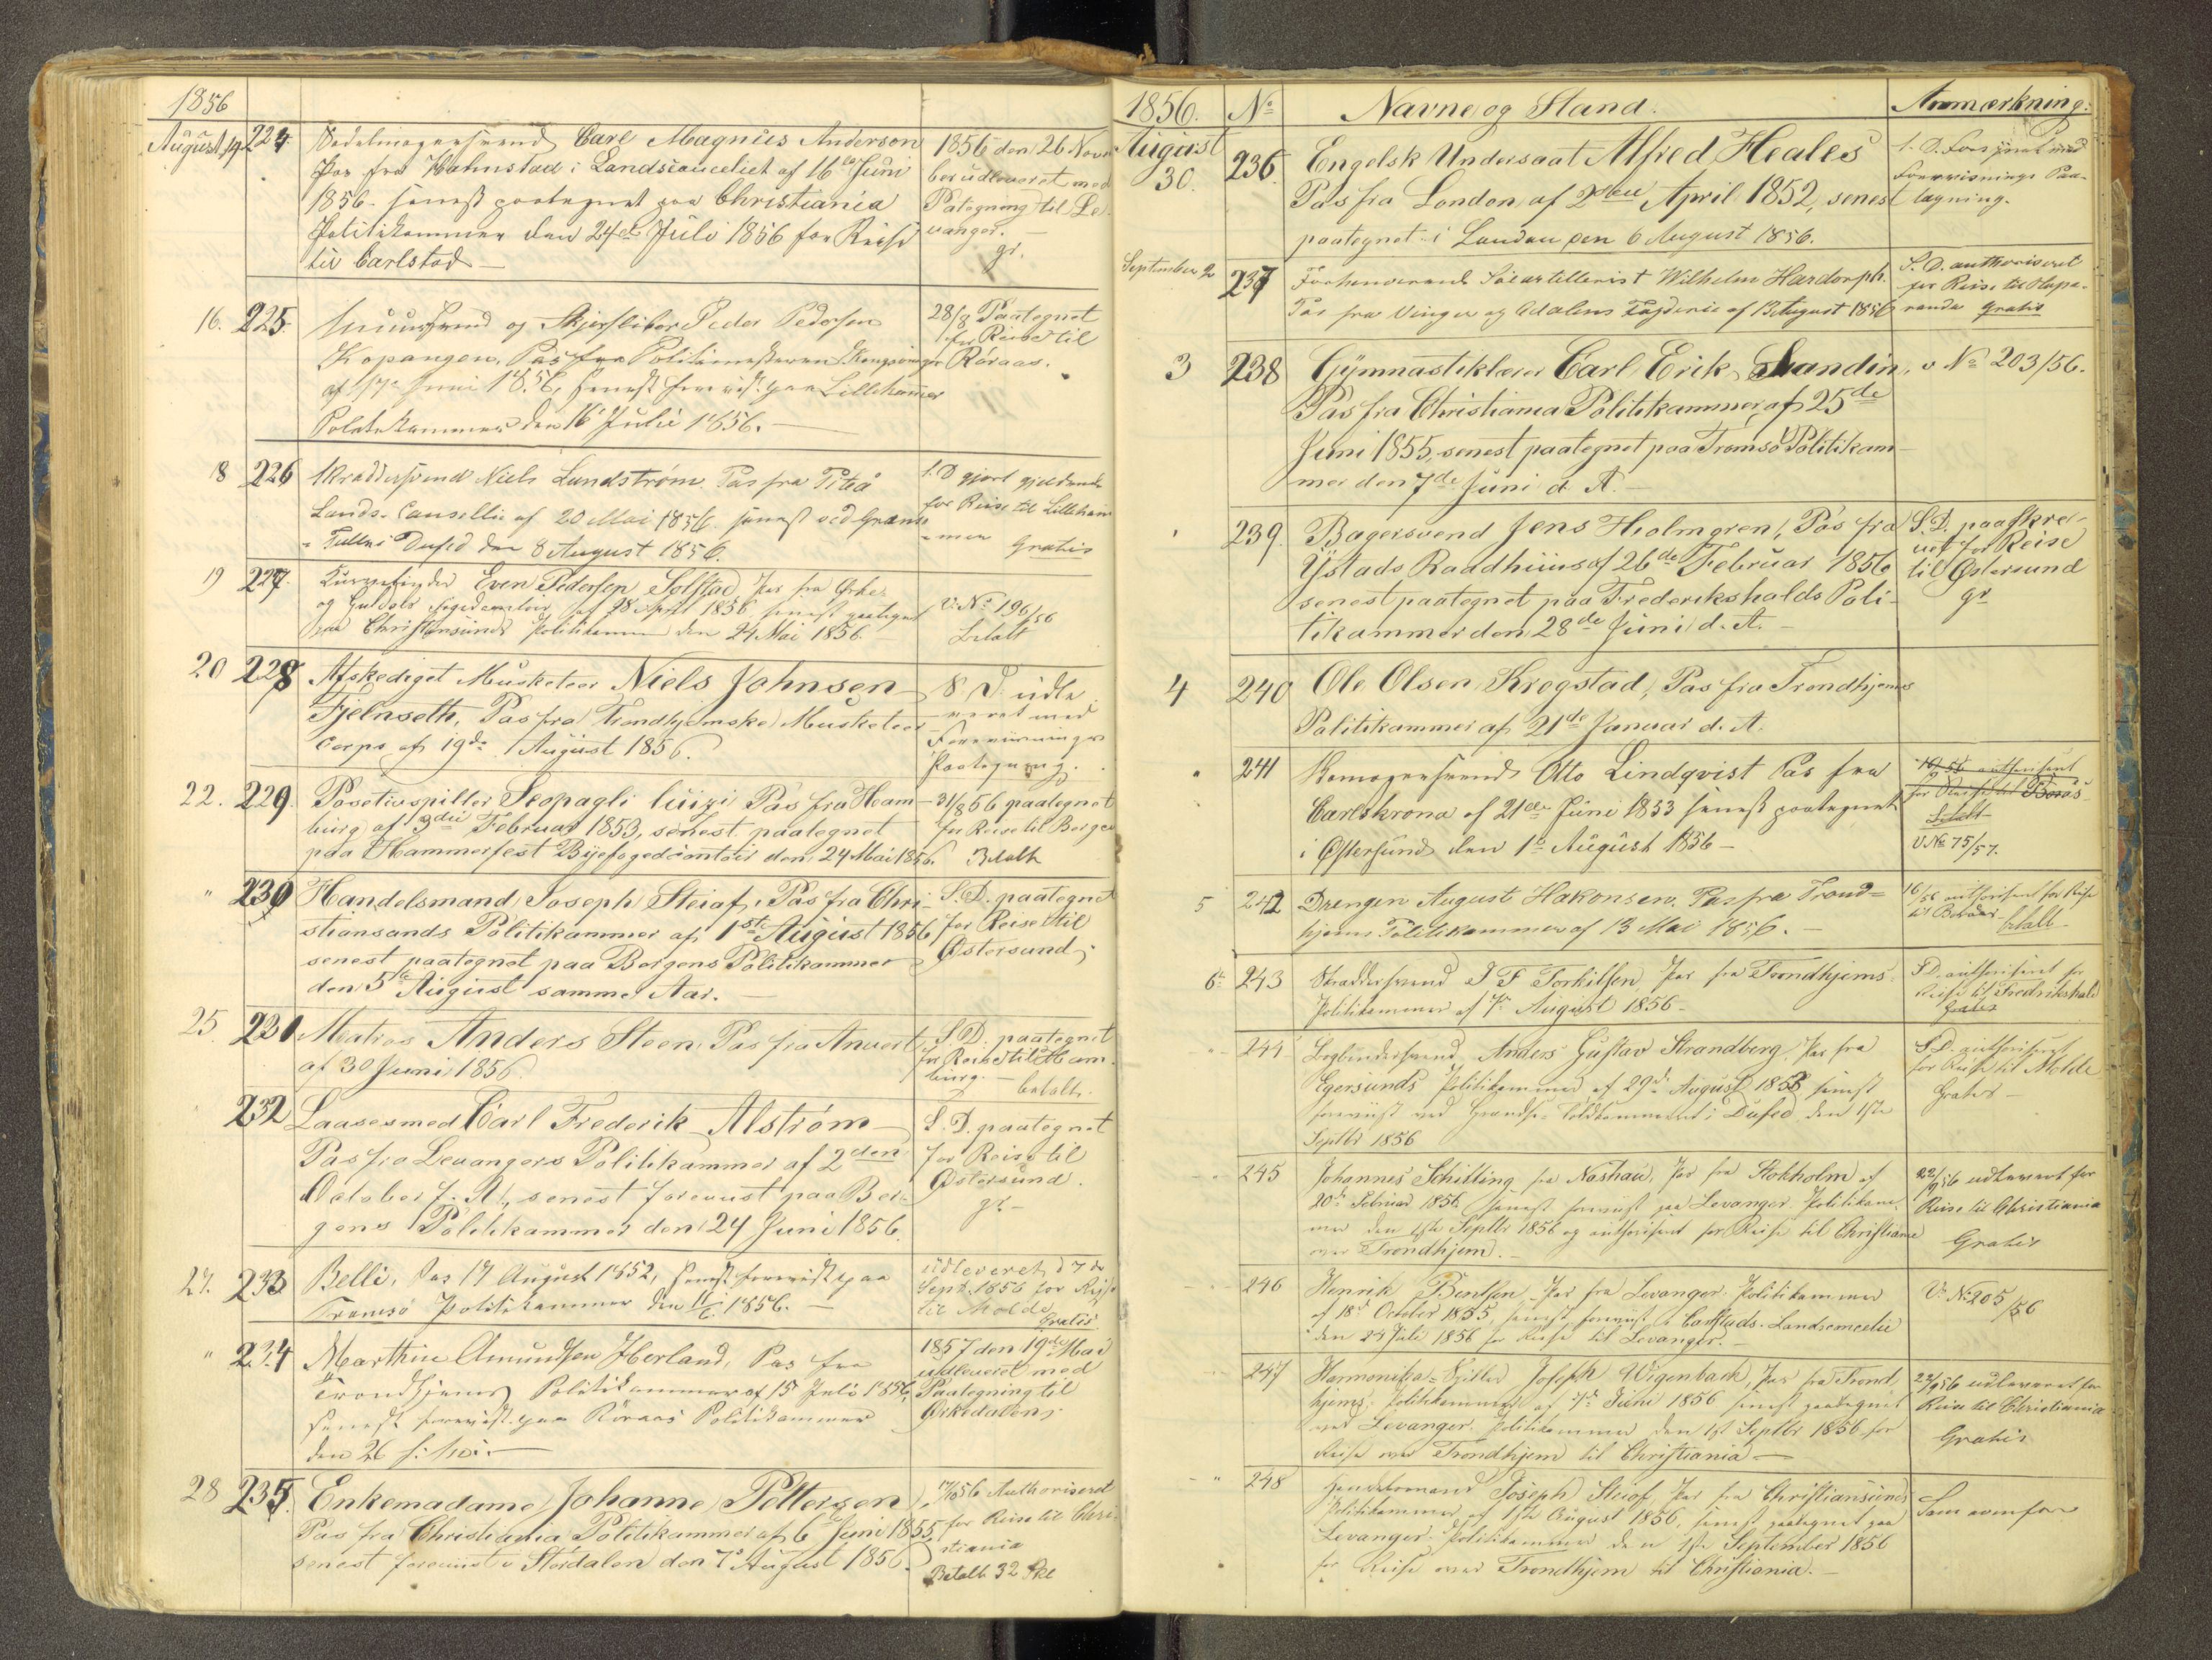 1856
August 19 224 Sadelmagersvend Carl Magnus Anderson
Pas fra Halmstad i Landscancelliet af 16de Juni
1856. senest paategnet paa Christiania
Politikammer den 24de Juli 1856 for Reise
til Carlstad
1856 den 26 Novem
ber udleveret med
Pategning til Le-
vanger.
gr.
16. 225. Muursvend og Skjersliber Peder Pedersen
Kopangen, Pas fra Politimesteren Kongsvinger
af 17de Juni 1856, senest forevist paa Lillehammer
Politikammer den 16 Juli 1856.
28/8 Paategnet
for Reise til
Röraas.
18 226 Skraddersvend Niels Lundstrøm. Pas fra Piteå
Lands-Cansellie af 20 Mai 1856. senest ved Grænse
Tullen Dufed den 8 August 1856.
S. D gjort gjeldende
for Reise til Lilleham
mer Gratis
19 227. Even Pedersen Solstad, Pas fra Orke-
og Guldals Fogedcontoir af 28 April 1856 senest paategnet
paa Christiansunds Politikammer den 24 Mai 1856
V. No 196/56
Betalt
20 228 Afskediget Musketeer Niels Johnsen
Fjelnseth, Pas fra Trondhjemske Musketeer
Corps af 19de August 1856.
S. D. udle
veret med
Forevisnings
Paategning.
22. 229. Posetivspiller Scopagli Luizi Pas fra Ham-
burg af 3die Februar 1853, senest paategnet
paa Hammerfest Byefogedcontoir den 24 Mai 1856.
31/8 56 paategnet
for Reise til Bergen
Betalt
" 230 Handelsmand Joseph Steiaf, Pas fra Chri-
stiansands Politikammer af 1ste August 1856
senest paategnet paa Bergens Politikammer
den 5te August samme Aar.
S. D. paategnet
for Reise til
Østersund
25. 231 Matros Anders Steen Pas fra Anvert
af 30 Juni 1856.
S. D. paategnet
for Reise til Ham-
burg.
betalt.
232 Laasesmed Carl Frederik Alstrøm
Pas fra Levangers Politikammer af 2den
October f. A., senest forevist paa Ber-
gens Politikammer den 24 Juni 1856.
S. D. paategnet
for Reise til
Østersund.
gr.
27. 233 Belli, Pas 17 August 1852, senest forevist paa
Tromsø Politikammer den 11/6 1856.
udleveret d 7de
Sept. 1856 for Reise
til Molde
Gratis
" 234 Marthin Amundsen Herland, Pas fra
Trondhjems Politikammer af 15 Juli 1856,
senest forevist paa Röraas Politikammer
den 26
1857 den 19de Mai
udleveret med
Paategning til
Orkedalen
28 235. Enkemadame Johanne Pettersen,
Pas fra Christiania Politikammer af 6te Juni 1855,
senest forevist i Stordalen den 7de August 1856.
Authoriseret
for Reise til Chri-
stiania
Betalt 32 Skl
1856. No Navne og Stand. Anmærkning:
August
30. 236. Engelsk Undersaat Alfred Heales
Pas fra London af 2den April 1852, senest
paategnet i London den 6 August 1856.
S. D. Forsynet med
Forevisnings Paa-
tegning.
September 2 237 Forhenværende Söeartillerist Wilhelm Hardorph.
Pas fra Vinger og Odalens Fogderie af 13 August 1856
S. D. authoriseret
for Reise til Hapa-
randa gratis
3 238 Gymnastiklærer Carl Erik Sandin,
Pas fra Christiania Politikammer af 25de
Juni 1855 senest paategnet paa Tromsø Politikam
mer den 7de Juni d. A.
v No 203/56.
239. Bagersvend Jens Holmgren, Pas fra
Ystads Raadhuus af 26de Februar 1856
senest paategnet paa Frederikshalds Poli-
tikammer den 28de Juni d. A.
S. D. paaskre-
vet for Reise
til Østersund
gr
4 240 Ole Olsen Krogstad, Pas fra Trondhjems
Politikammer af 21de Januar d. A.
" 241 Otto Lindqvist Pas fra
Carlskrona af 21de Juni 1853 senest paategnet
i Østersund den 1ste August 1856
authoriseret
for Reise til Borås
Betalt
V No 75/57.
5 242 Drengen August Hakonsen. Pas fra Trond=
hjems Politikammer af 13 Mai 1856.
authoriseret for Reise
betalt
6te 243 Skraddersvend J F Torkilsen, Pas fra Trondhjems
Politikammer af 7de August 1856
S D authoriseret for
Reise til Fredrikshald
Gratis
" 244 Bogbindersvend Anders Gustav Strandberg, Pas fra
Egersunds Politikammer af 29de August 1855 senest
forevist ved Grændse-Toldkammeret i Dufed den 1ste
Septbr 1856
S. D. authoriseret
for Reise til Molde
Gratis
" 245 Johannes Schilling fra Nashau, Pas fra Stokholm af
20de Februar 1856, senest forevist paa Levanger Politikam-
mer den 1ste Septbr 1856 og authoriseret for Reise til Christiania
over Trondhjem.
22/9 56 udleveret for
Reise til Christiania
Gratis
" 246 Henrik Bentsen, Pas fra Levanger Politikammer
af 18de October 1855, senest forevist i Carlstads Landscancelie
den 24 Juli 1856 for Reise til Levanger.
V. No 205/56
247 Harmonika-Spiller Joseph Wigenbach, Pas fra Trond
hjems Politikammer af 7de Juni 1856 senest paategnet
ved Levanger Politikammer den 1ste Septbr 1856 for
Reise over Trondhjem til Christiania
22/9 56 udleveret for
Reise til Christiania
Gratis
" 248 Handelsmand Joseph Steiof, Pas fra Christiansunds
Politikammer af 1ste August 1856, senest paategnet paa
Levanger Politikammer den 1ste September 1856
for Reise over Trondhjem til Christiania.
Som ovenfor